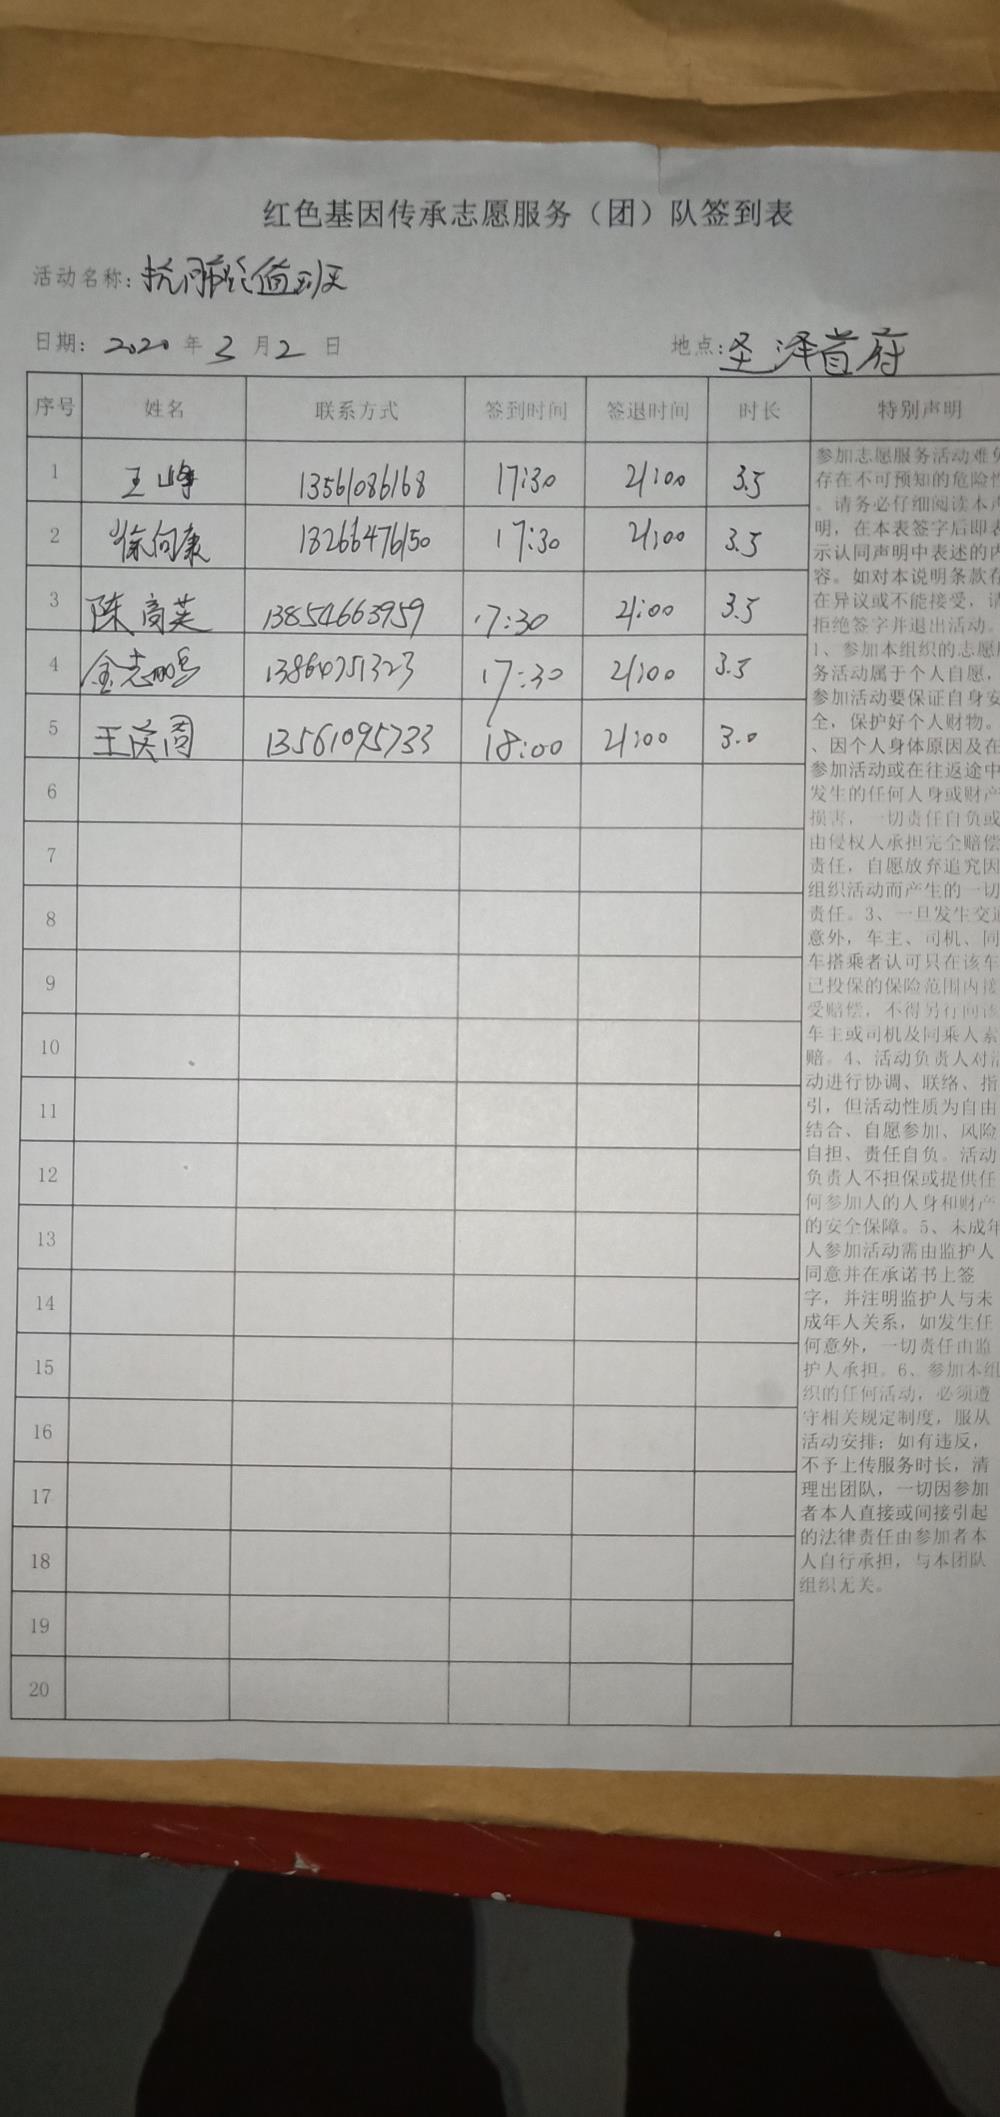 红色基因传承志愿服务（团）队签到表
活动名称：值班
日期：2020 年 3 月 2 日 地点：圣泽首府
序号 姓名 联系方式 签到时间 签退时间 时长 特别声明
1 王峥 13561086168 17:30 21:00 3.5
2 徐向康 13266476150 17:30 21:00 3.5
3 陈商英 13854663959 17:30 21:00 3.5
4 金志鹏 13864751323 17:30 21:00 3.5
5 王 13561095733 18:00 21:00 3.0
6
7
8
9
10
11
12
13
14
15
16
17
18
19
20
参加志愿服务活动难免
存在不可预知的危险性
。请务必仔细阅读本声
明，在本表签字后即表
示认同声明中表述的内
容。如对本说明条款存
在异议或不能接受，请
拒绝签字并退出活动。
1、参加本组织的志愿服
务活动属于个人自愿，
参加活动要保证自身安
全，保护好个人财物。
、因个人身体原因及在
参加活动或在往返途中
发生的任何人身或财产
损害，一切责任自负或
由侵权人承担完全赔偿
责任，自愿放弃追究因
组织活动而产生的一切
责任。3、一旦发生交通
意外，车主、司机、同
车搭乘者认可只在该车
已投保的保险范围内接
受赔偿，不得另行向该
车主或司机及同乘人索
赔。4、活动负责人对活
动进行协调、联络、指
引，但活动性质为自由
结合、自愿参加、风险
自担、责任自负。活动
负责人不担保或提供任
何参加人的人身和财产
的安全保障。5、未成年
人参加活动需由监护人
同意并在承诺书上签
字，并注明监护人与未
成年人关系，如发生任
何意外，一切责任由监
护人承担。6、参加本组
织的任何活动，必须遵
守相关规定制度，服从
活动安排；如有违反，
不予上传服务时长，清
理出团队，一切因参加
者本人直接或间接引起
的法律责任由参加者本
人自行承担，与本团队
组织无关。